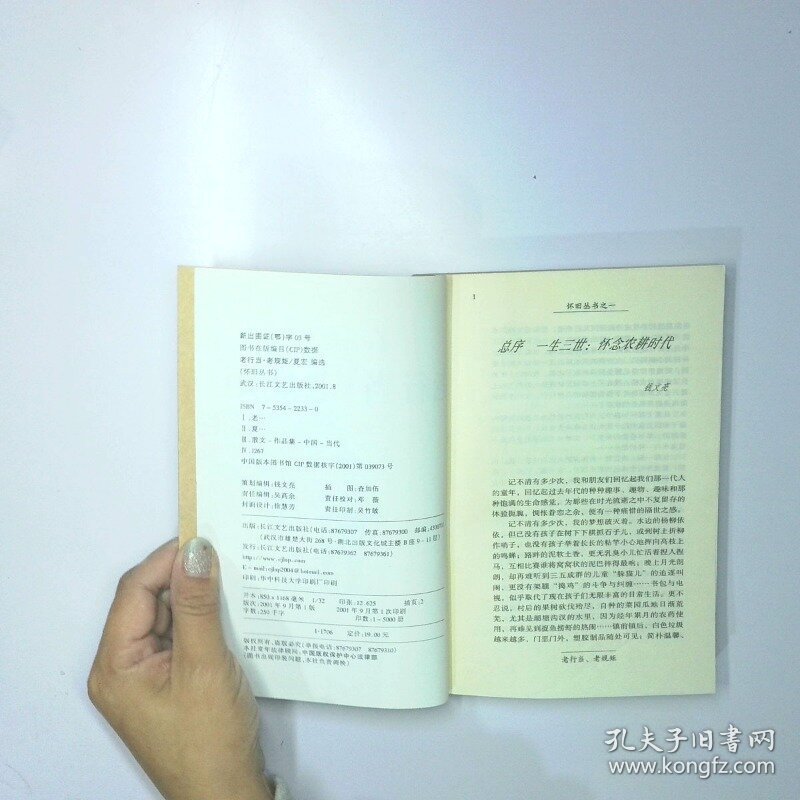 新出图证(鄂)字03号
图书在版编目(CIP)数据
老行当·老规矩/夏宏 编选
(怀旧丛书)
武汉:长江文艺出版社,2001.8
ISBN 7-5354-2233-0
Ⅰ.老…
Ⅱ.夏…
Ⅲ.散文-作品集-中国-当代
Ⅳ.I267
中国版本图书馆CIP数据核字(2001)第039073号
策划编辑:钱文亮
责任编辑:吴高余
责任校对:邓 薇
封面设计:徐慧芳
责任印制:吴竹敏
出版:长江文艺出版社(电话:87679307 传真:87679300
(武汉市雄楚大街268号·湖北出版文化城主楼B座9-11楼)
发行:长江文艺出版社(电话:87679362 87679361)
http://www.cjlap.com
E-mail:cjlap2004@hotmail.com
印刷:华中科技大学印刷厂印刷
开本:850×1168毫米 1/32
印张:12.625
插页:2
版次:2001年9月第1版
2001年9月第1次印刷
字数:250千字
印数:1-5000册
I·1706 定价:19.00元
版权所有,盗版必究(举报电话:87679307 87679310)
本社常年法律顾问:中国版权保护中心法律部
(图书出现印装问题,本社负责调换)
1
怀旧丛书之一
总序 一生三世:怀念农耕时代
钱文亮
记不清有多少次,我和朋友们回忆起我们那一代人
的童年,回忆起过去年代的种种趣事、趣物、趣味和那
种饱满的生命感觉,为那些在时光流逝之中不复留存的
体验抚胸,惆怅眷恋之余,便有一种痛惜的隔世之感。
记不清有多少次,我的梦想破灭着。水边的杨柳依
依,但已没有孩子在树下下棋抓石子儿,或到树上折柳
作哨子,也没有孩子举着长长的粘竿小心地腾向高枝上
的鸣蝉;路畔的泥软土香,更无乳臭小儿忙活着捏人捏
马,互相比赛谁将窝窝状的泥巴摔得最响;晚上月光朗
朗,却再难听到三五成群的儿童“躲猫儿”的追逐叫
闹,更没有架腿“捣鸡”的斗争与纠缠……书包与电
视,似乎取代了现在孩子们无限丰富的日常生活。更不
忍说,村后的果树砍伐殆尽,自种的菜园瓜地日渐荒
芜,尤其是潮塘沟汊的水里,因为经年累月的农药使
用,再难见到捉鱼捞虾的热闹……镇前镇后,白色垃圾
越来越多,门里门外,塑胶制品随处可见;简朴温馨、
老行当、老规矩
孔夫子旧书网
www.kongfz.com